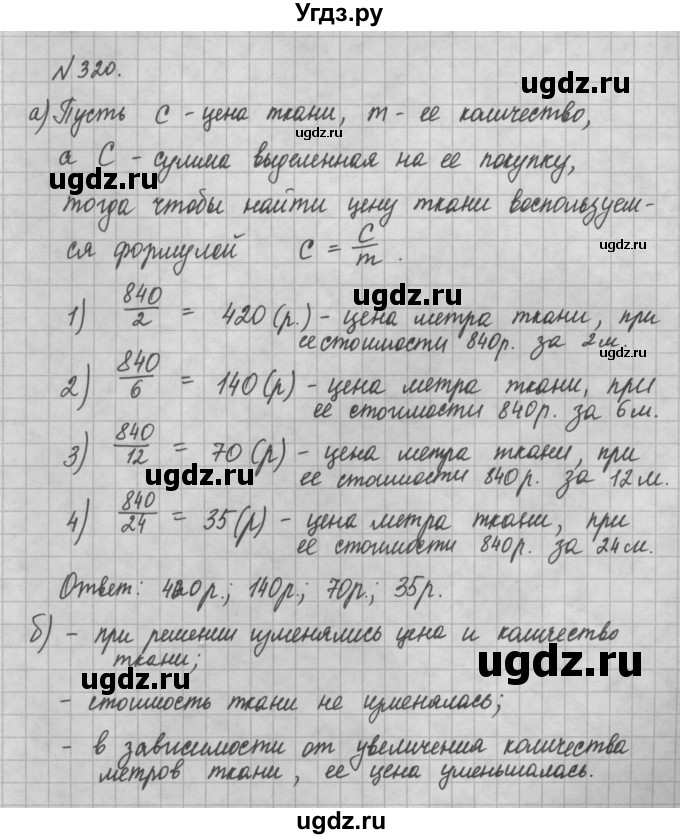 Угдз.ру
№320.
а) Пусть с - цена ткани, m - ее количество,
а С - сумма выделенная на ее покупку,
тогда чтобы найти цену ткани воспользуем-
ся формулой с = C/m.
1) 840/2 = 420(р.) - цена метра ткани, при
ее стоимости 840р. за 2м.
2) 840/6 = 140(р) - цена метра ткани, при
ее стоимости 840р. за 6м.
3) 840/12 = 70(р) - цена метра ткани, при
ее стоимости 840р. за 12м.
4) 840/24 = 35(р) - цена метра ткани, при
ее стоимости 840р. за 24м.
Ответ: 420р.; 140р.; 70р.; 35р.
б) - при решении изменялись цена и количество
ткани;
- стоимость ткани не изменялась;
- в зависимости от увеличения количества
метров ткани, ее цена уменьшалась.
ugdz.ru
ugdz.ru
ugdz.ru
ugdz.ru
ugdz.ru
ugdz.ru
ugdz.ru
ugdz.ru
ugdz.ru
ugdz.ru
ugdz.ru
ugdz.ru
ugdz.ru